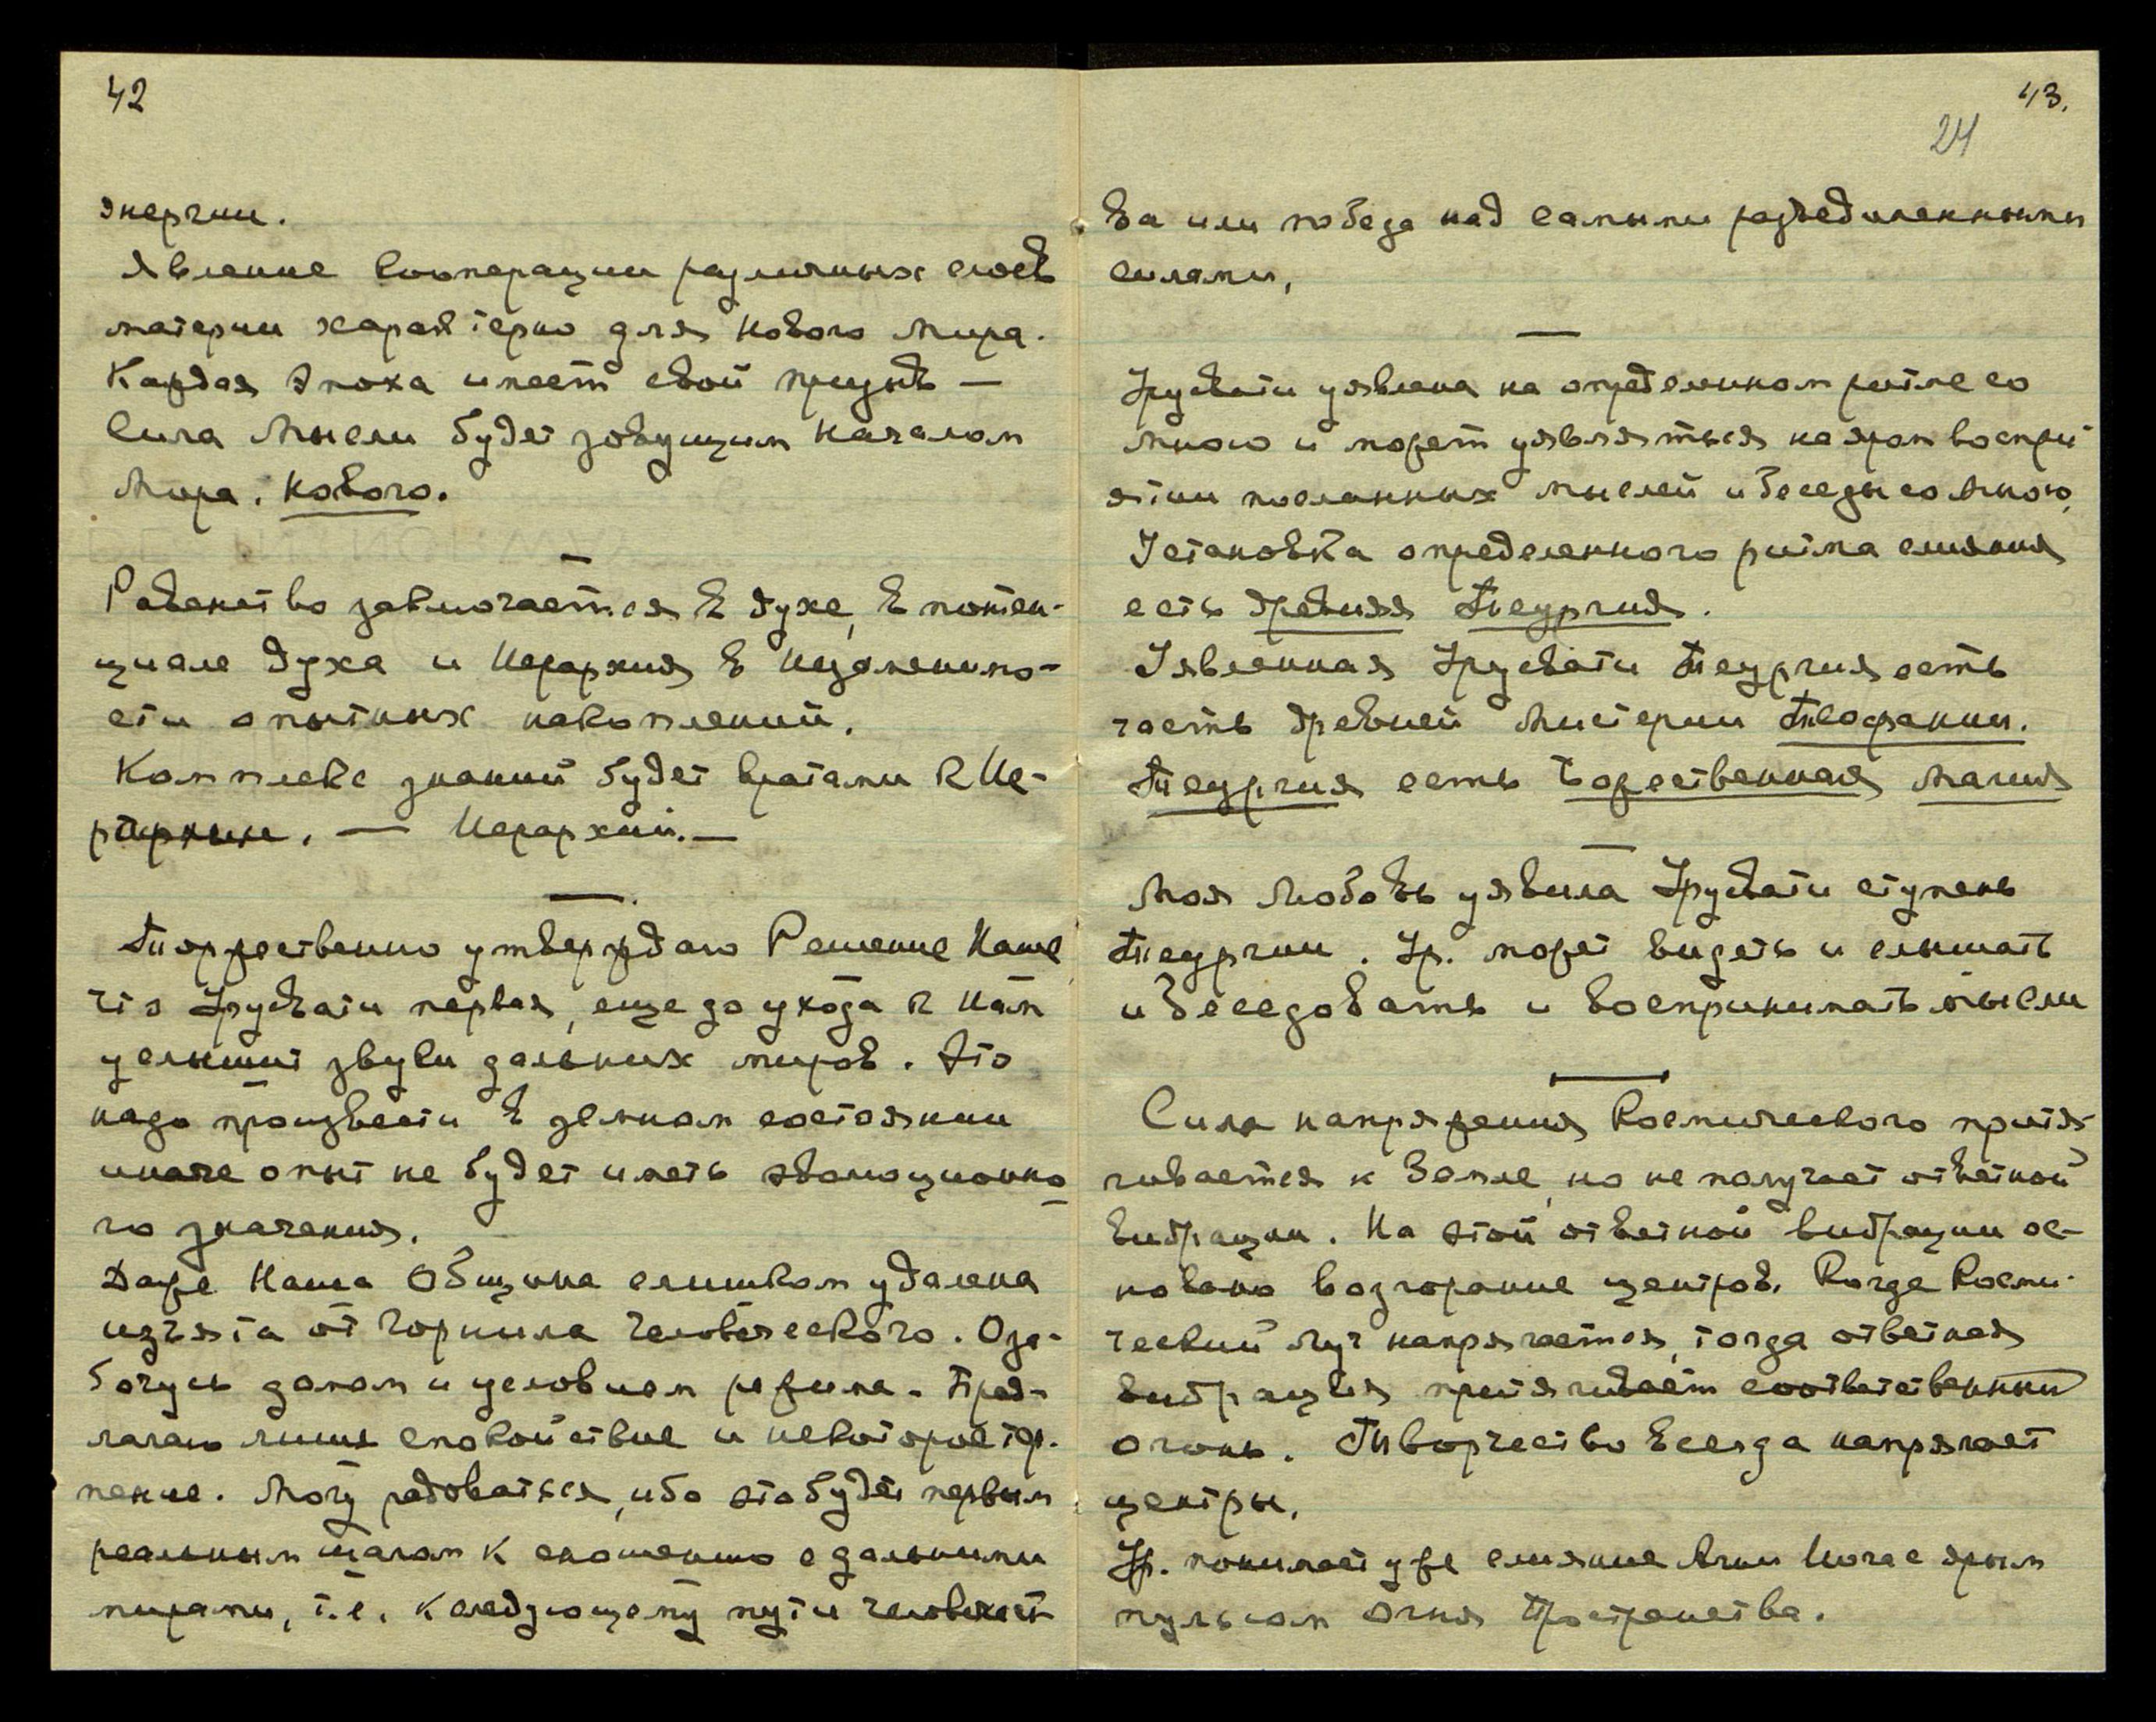 42
энергии.
Явление кооперации различных слоев
материи характерно для нового мира.
Каждая эпоха имеет свой призыв —
Сила Мысли будет зовущим началом
Мира. Нового.
Равенство заключается в духе, в потен-
циале духа и Иерархия в неизменно-
сти опытных накоплений.
Комплекс знаний будет вратами к Ие-
— Иерархии. —
Торжественно утверждаю Решение Наше
что Урусвати первая, еще до ухода к Нам
услышит звуки дальних миров. Это
надо произвести в земном состоянии
иначе опыт не будет иметь эволюционно-
го значения.
Даже Наша Община слишком удалена
изъята от горнила человеческого. Оза-
бочусь домом и условием режима. Пред-
лагаю лишь спокойствие и некоторое тер-
пение. Могу радоваться, ибо это будет первым
реальным шагом к сношению с дальними
мирами, т.е. к следующему пути человечест-
43.
24
ва или победа над самыми разъединенными
силами.
Урусвати уявлена на определенном ритме со
мною и может уявляться на яром воспри-
ятии посланных мыслей и беседы со Мною,
Установка определенного ритма слияния
есть древняя Теургия.
Уявленная Урусвати Теургия есть
часть древней Мистерии Теофании.
Теургия есть Божественная Магия
Моя Любовь уявила Урусвати ступень
Теургии. Ур. может видеть и слышать
и беседовать и воспринимать мысли
Сила напряжения Космического притя-
гивается к Земле, но не получает ответной
вибрации. На этой ответной вибрации ос-
новано возгорание центров. Когда Косми-
ческий Луч напрягается, тогда ответная
вибрация притягивает соответственный
огонь. Творчество всегда напрягает
центры.
Ур. понимает уже слияние Агни Йога с ярым
пульсом Огня Пространства.